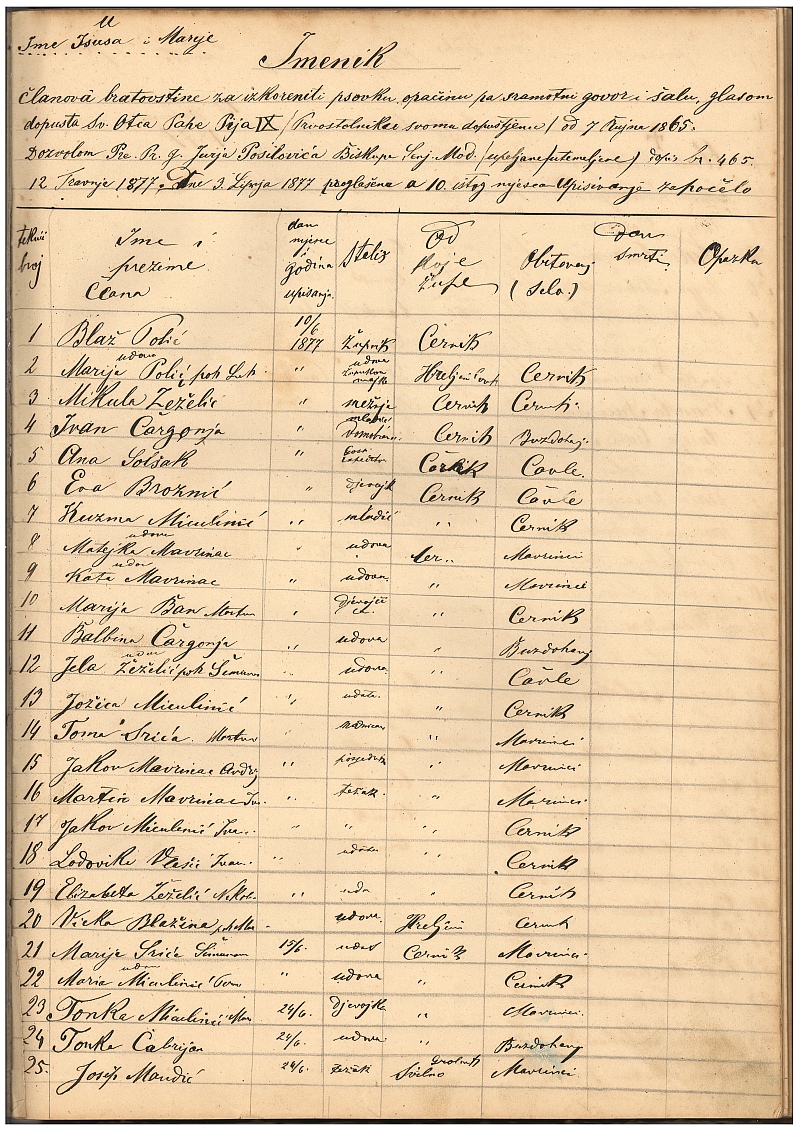 U
Ime Isusa i Marije
Imenik
Članovâ bratovštine za izkoreniti psovku, opačinu pa sramotni govor i šalu, glasom
dopusta Sv. Otca Pape Pija IX /Prvostolnika svoma dopuštenu/ od 7 Rujna 1865.
Dozvolom Pre. Pr. g. Jurja Posilovića Biskupa Senj. Mod. /upeljane/utemeljene/ dopis br. 465.
12 Travnja 1877. Dne 3. Lipnja 1877 proglašena a 10. istog mjeseca Upisivanje započelo
tekući broj
Ime i prezime Člana
dan mjesec i godina upisanja
Stališ
Od koje župe
Obitavanj (Selo.)
Dan smrti
Opazka
1 Blaž Polić 10/6 1877 Župnik Cernik
2 Marija udova Polić pok Luk. " udova Hreljin Cernik
3 Mikula Žeželić " mežnja Cernik Cernik
4 Ivan Čargonja " mladić Cernik Buzdohanj
5 Ana Solšak " Cernik Čavle.
6 Eva Broznić " djevojk Cernik Čavle
7 Kuzma Miculinić " mladić " Cernik
8 Matejka udova Mavrinac udova Cer.. Mavrinci
9 Kata udov Mavrinac " udova " Mavrinci
10 Marija Ban Martin " djevojčica " Cernik
11 Balbina Čargonja " udova " Buzdohanj
12 Jela udova Žeželić pok Šimuna " udova " Čavle
13 Jožica Miculinić " udata " Cernik
14 Toma Srića Martin " " Mavrinci
15 Jakov Mavrinac Andrij " posjednik " Mavrinci
16 Martin Mavrinac Iv. " težak " Mavrinci
17 Jakov Miculinić Iva.. " " " Cernik
18 Lodovika Vlašić Ivan. " udata " Cernik
19 Elizabeta Žeželić Nikol. " uda " Cernik
20 Vicka Blažina udova Hreljin Cernik
21 Marija Srića Šimunom 15/6. udat Cernik Mavrinci
22 Maria udova Miculinić " udova " Cernik
23 Tonka Miculinić 24/6. djevojka " Mavrinci
24 Tonka Čabrijan 24/6. udova " Buzdohanj
25. Josip Mandić 24/6. težak Grobnik Svilno Mavrinci